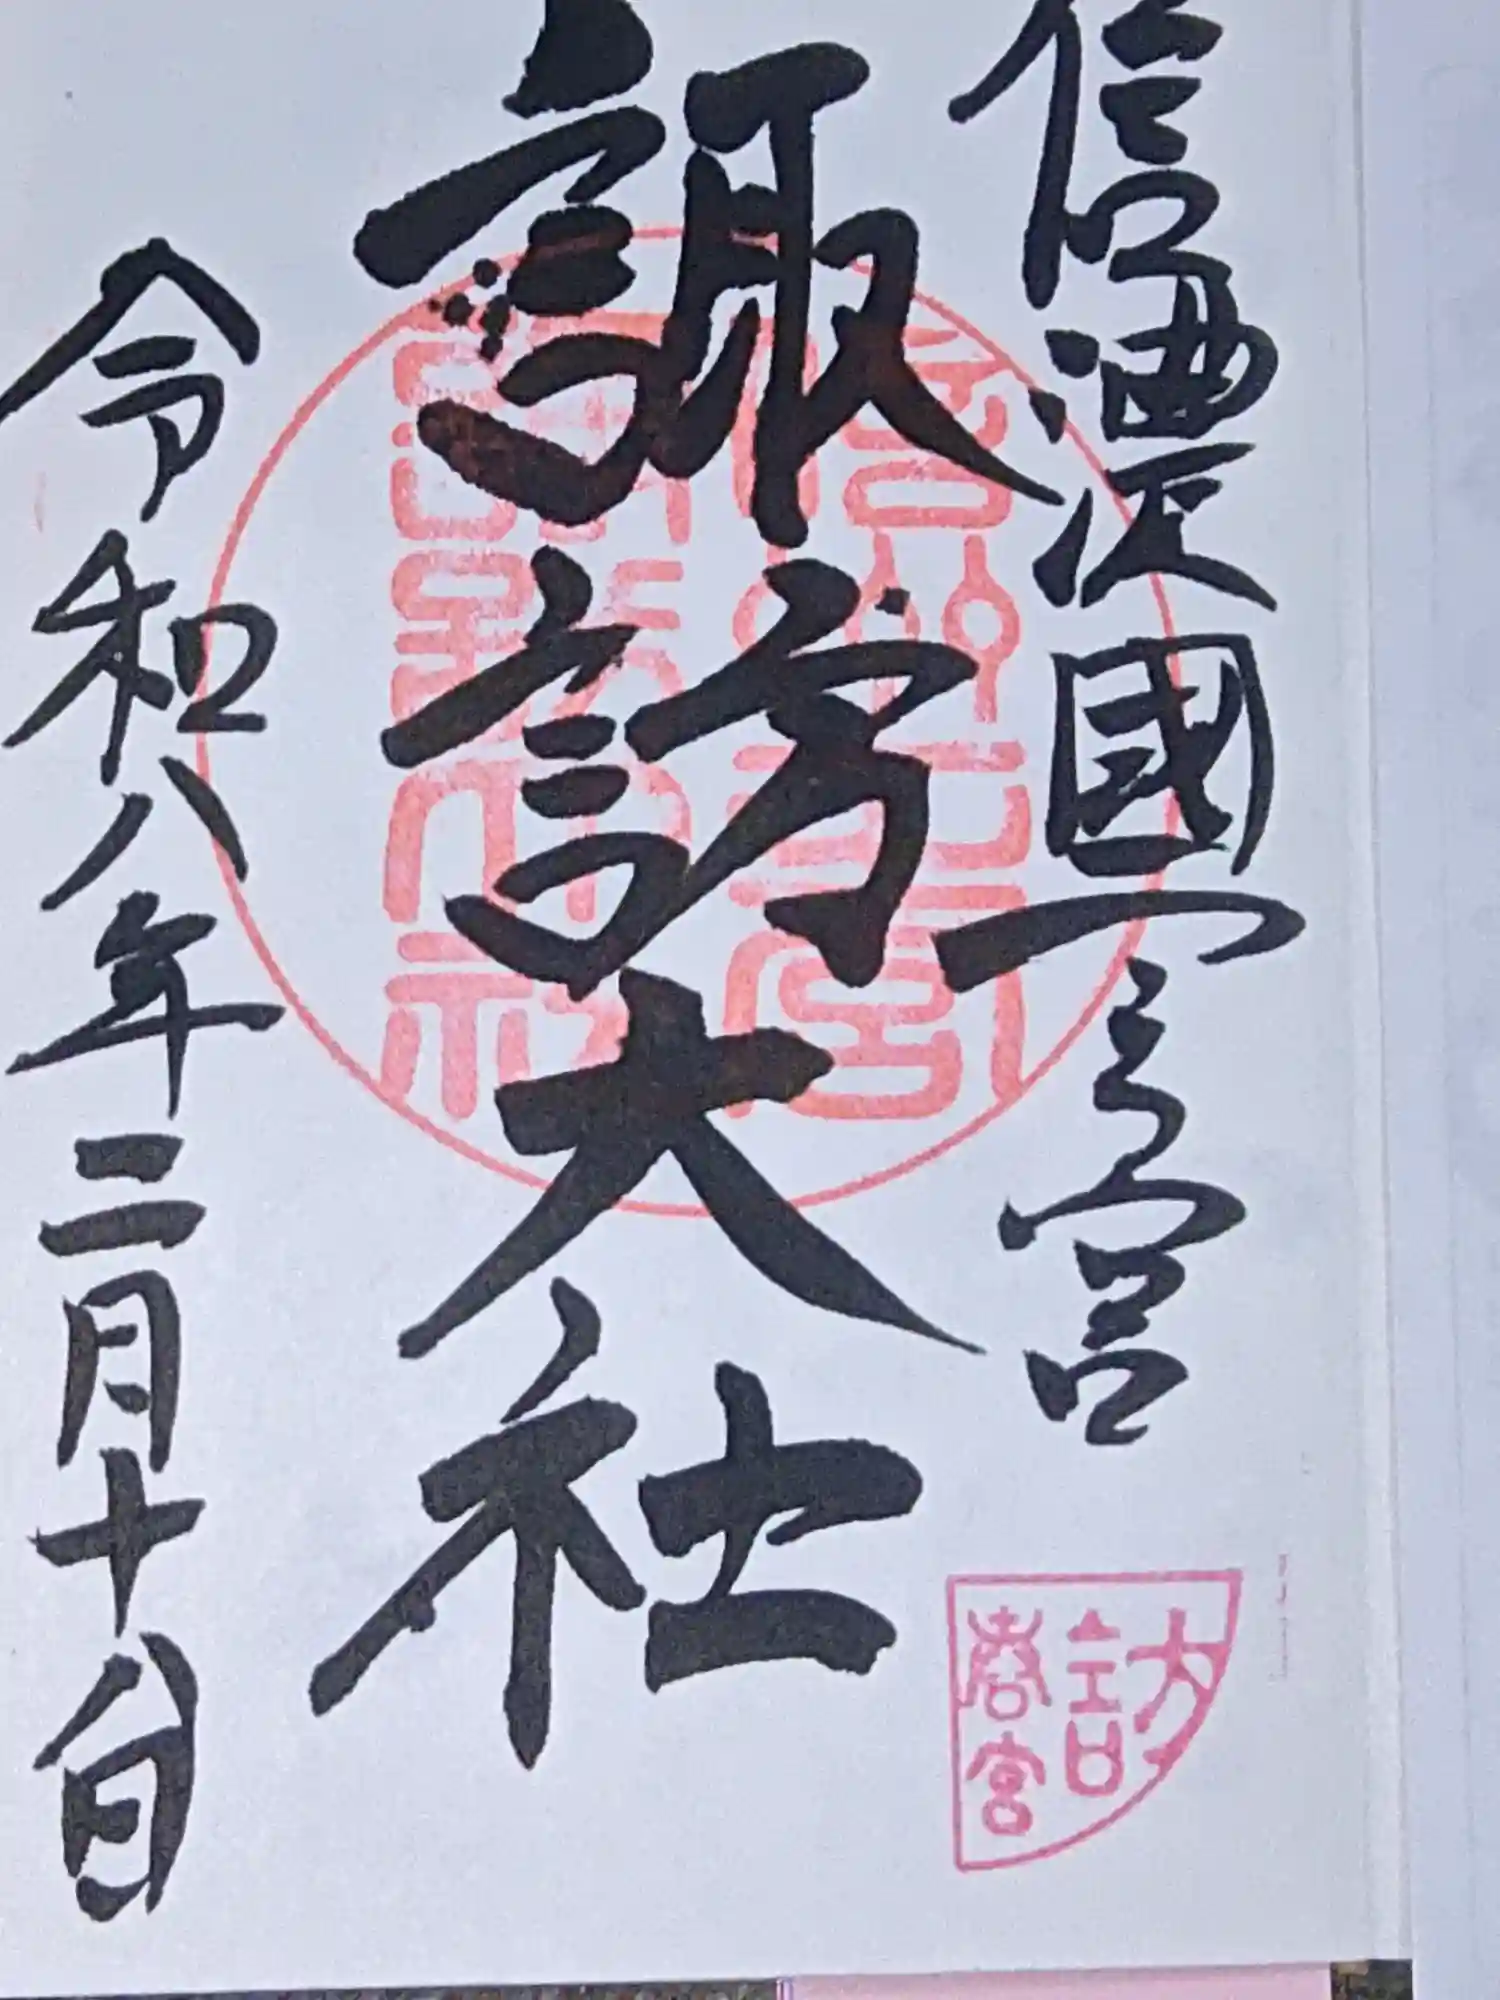 信濃國一之宮
諏訪大社
令和八年二月十八日
訪
春宮